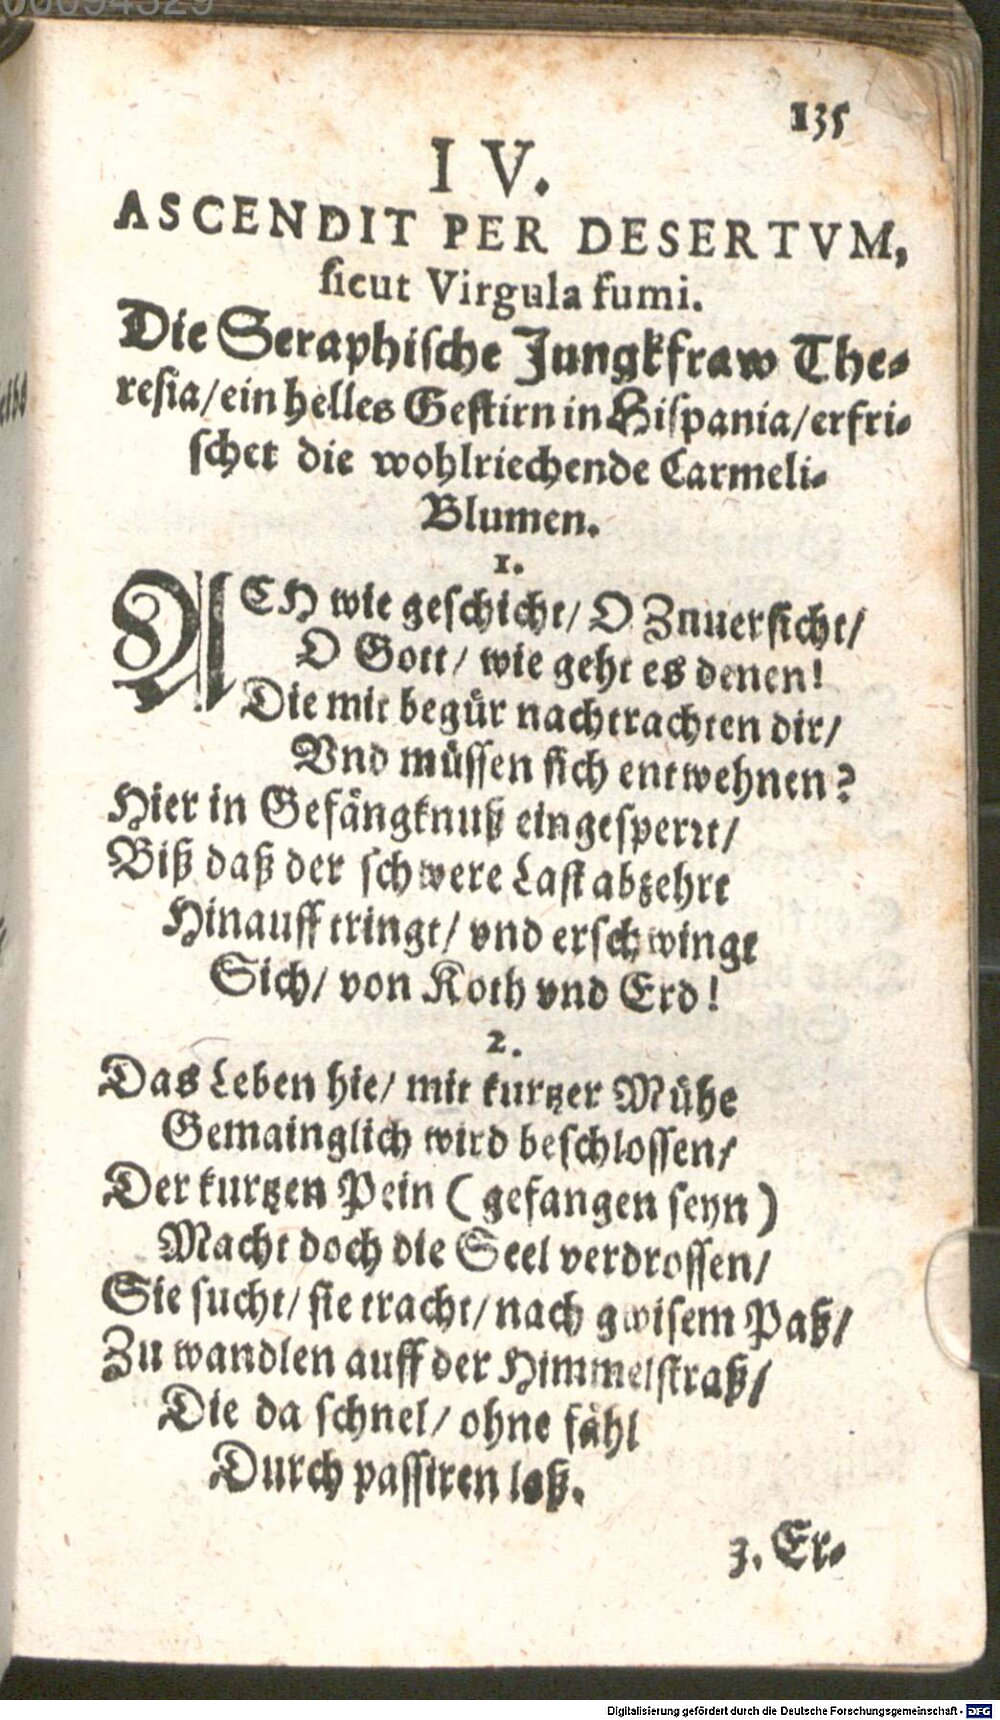 135
IV.
ASCENDIT PER DESERTVM,
sicut Virgula fumi.
Die Seraphische Jungkfraw The-
resia/ ein helles Gestirn in Hispania/ erfri-
schet die wohlriechende Carmeli-
Blumen.
1.
ACH wie geschicht/ O Znuersicht/
O Gott/ wie geht es denen!
Die mit begür nachtrachten dir/
Vnd müssen sich entwehnen?
Hier in Gefängknuß eingesperrt/
Biß daß der schwere Last abzehrt
Hinauff tringt/ vnd erschwingt
Sich/ von Koth vnd Erd!
2.
Das Leben hie/ mit kurtzer Mühe
Gemainglich wird beschlossen/
Der kurtzen Pein (gefangen seyn)
Macht doch die Seel verdrossen/
Sie sucht/ sie tracht/ nach gwisem Paß/
Zu wandlen auff der Himmelstraß/
Die da schnel/ ohne fähl
Durch passiren laß.
3. Er-
Digitalisierung gefördert durch die Deutsche Forschungsgemeinschaft - DFG